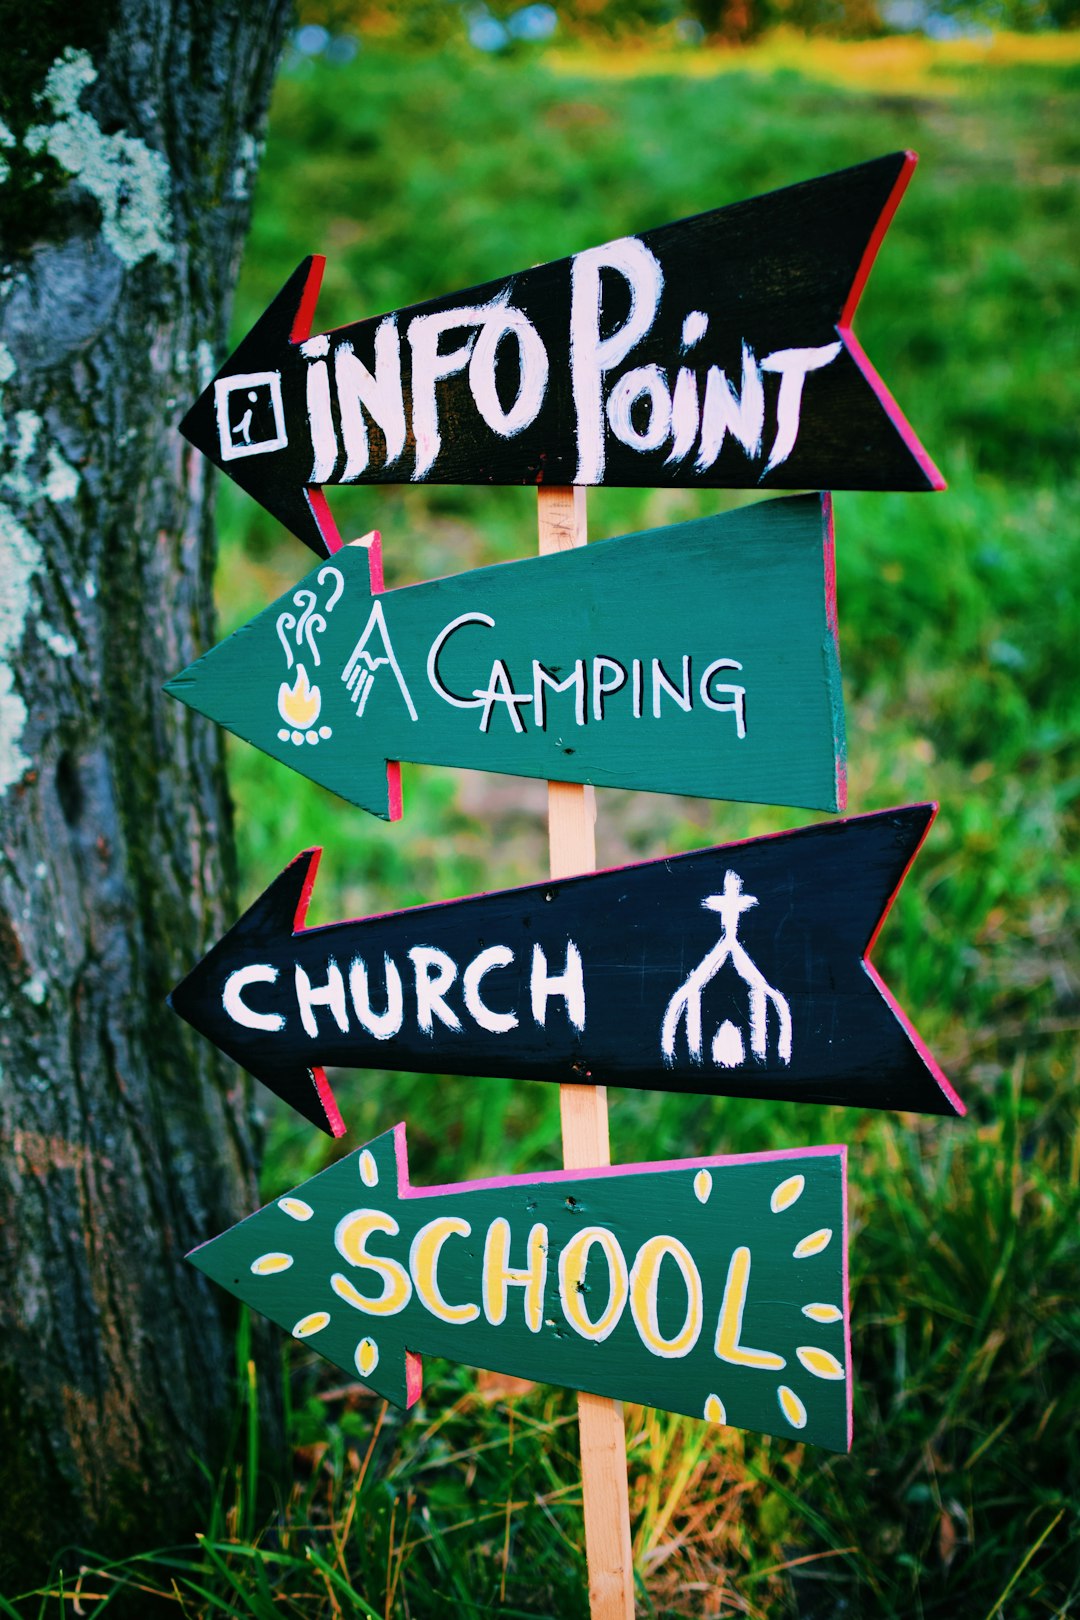 i iNFO POiNT
CAMPING
CHURCH
SCHOOL